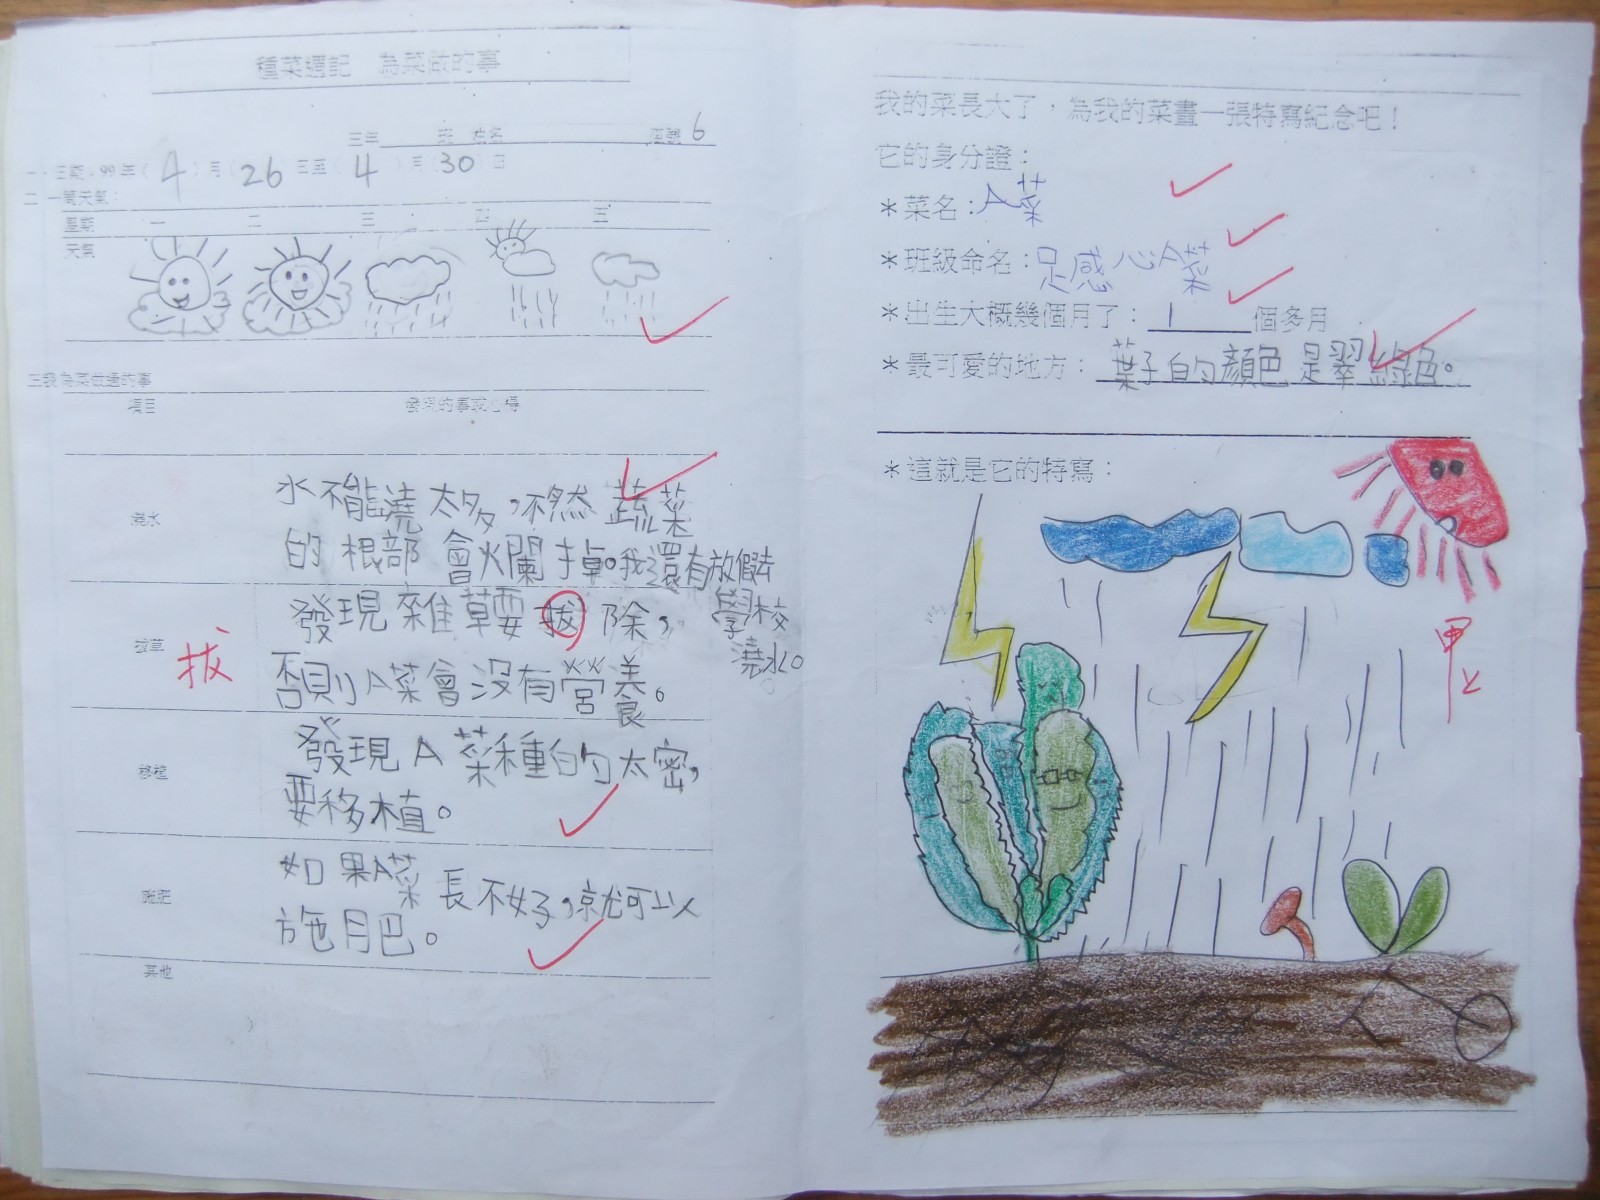 種菜週記 為菜做的事
三年 班 姓名 座號 6
一、日期：99年（4）月（26）日至（4）月（30）日
二、一周天氣：
星期 一 二 三 四 五
天氣
三我為菜做過的事
項目 發現的事或心得
澆水
水不能澆太多，不然蔬菜
的根部會爛掉。我還有放假去
學校
澆水。
拔草
發現雜草要拔除，
否則A菜會沒有營養。
拔
移植
發現A菜種的太密，
要移植。
施肥
如果A菜長不好，就可以
施肥。
其他
我的菜長大了，為我的菜畫一張特寫紀念吧！
它的身分證：
＊菜名：A菜
＊班級命名：足感心A菜
＊出生大概幾個月了：1個多月
＊最可愛的地方：葉子的顏色是翠綠色。
＊這就是它的特寫：
甲上